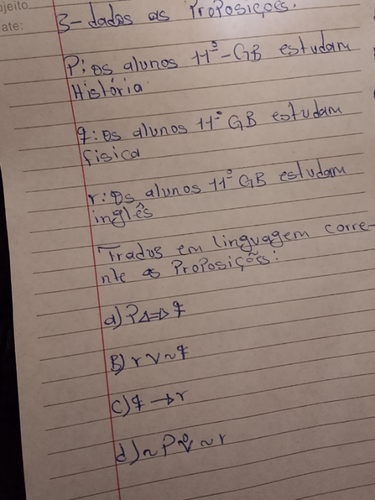 ojeto
ate:
3-dados as Proposições.
P: Os alunos 11ª-GB estudam
História
q: Os alunos 11ª GB estudam
física
r: Os alunos 11ª GB estudam
inglês
Trados em linguagem corre-
nte as Proposições:
a) P<=>q
B) r v ~ q
C) q → r
d) ~ P v ~ r